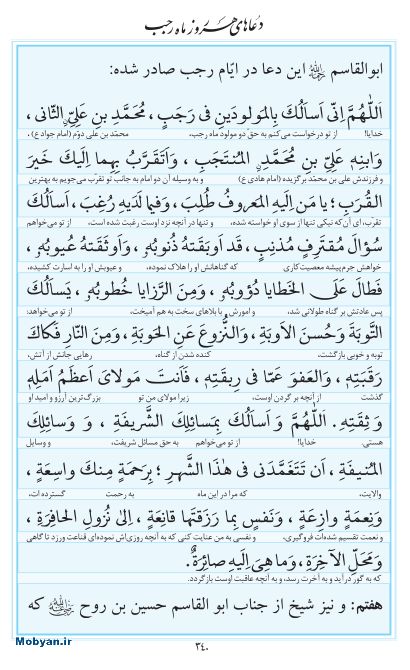 دعاهای هر روز ماه رجب
ابوالقاسم این دعا در ایّام رجب صادر شده:
اَللّٰهُمَّ اِنّی اَسأَلُكَ بِالمَولودَینِ فی رَجَبٍ ، مُحَمَّدِ بنِ عَلِیٍّ الثّانی ،
خدایا! از تو درخواست می‌کنم به حق دو مولود ماه رجب، محمّد بن علی دوّم (امام جواد ع) ،
وَابنِهِ عَلِیِّ بنِ مُحَمَّدٍ المُنتَجَبِ ، وَاَتَقَرَّبُ بِهِما اِلَیكَ خَیرَ
و فرزندش علی بن محمّد برگزیده (امام هادی ع) و به وسیله آن دو امام به جانب تو تقرب می‌جویم به بهترین
القُرَبِ ؛ یا مَن اِلَیهِ المَعروفُ طُلِبَ ، وَفیما لَدَیهِ رُغِبَ ، اَسأَلُكَ
تقرب، ای آن‌که نیکی تنها از سوی او خواسته شده، و تنها در آنچه نزد اوست رغبت شده است، از تو می‌خواهم
سُؤالَ مُقتَرِفٍ مُذنِبٍ ، قَد اَوبَقَتهُ ذُنوبُهُ ، وَاَوثَقَتهُ عُیوبُهُ ،
خواهش جرم‌پیشه معصیت‌کاری که گناهانش او را هلاک نموده، و عیوبش او را به اسارت کشیده،
فَطالَ عَلَی الخَطایا دُؤوبُهُ ، وَمِنَ الرَّزایا خُطوبُهُ ، یَسأَلُكَ
پس عادتش بر گناه طولانی شد، و امورش با بلاهای سخت به هم آمیخت، از تو می‌خواهد:
التَّوبَةَ وَحُسنَ الاَوبَةِ ، وَالنُّزوعَ عَنِ الحَوبَةِ ، وَمِنَ النّارِ فَكاكَ
توبه و خوبی بازگشت، کنده شدن از گناه، رهایی جانش از آتش،
رَقَبَتِهِ ، وَالعَفوَ عَمّا فی رِبقَتِهِ ، فَاَنتَ مَولایَ اَعظَمُ اَمَلِهِ
گذشت از آنچه بر گردن اوست، زیرا مولای من تو بزرگ‌ترین آرزو و امید او
وَ ثِقَتِهِ. اَللّٰهُمَّ وَ اَسأَلُكَ بِمَسائِلِكَ الشَّریفَةِ ، وَ وَسائِلِكَ
هستی. خدایا! از تو می‌خواهم به حق مسائل شریفت، و وسایل
المُنیفَةِ ، اَن تَتَغَمَّدَنی فی هٰذَا الشَّهرِ ؛ بِرَحمَةٍ مِنكَ واسِعَةٍ ،
والایت، که مرا در این ماه به رحمت گسترده ات،
وَنِعمَةٍ وازِعَةٍ ، وَنَفسٍ بِما رَزَقتَها قانِعَةٍ ، اِلیٰ نُزولِ الحافِرَةِ ،
و نعمت تقسیم شده‌ات فروگیری، و نفسی به من عنایت کنی که به آنچه روزی‌اش نموده‌ای قناعت ورزد تا گاهی
وَمَحَلِّ الآخِرَةِ ، وَما هِیَ اِلَیهِ صائِرَةٌ.
که به گور درآید و به آخرت رسد، و به آنچه عاقبت اوست بازگردد.
هفتم: و نیز شیخ از جناب ابو القاسم حسین بن روح که
Mobyan.ir
۳۴۰